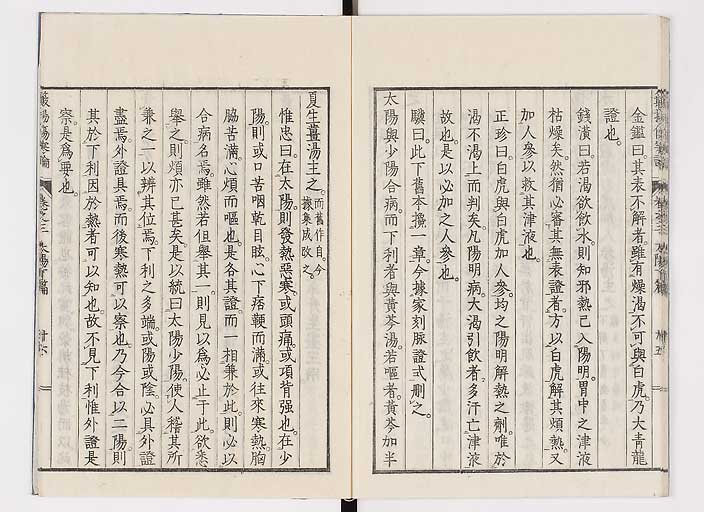 金鑑曰其表不解者雖有燥渴不可與白虎乃大青龍
證也。
錢潢曰若渴欲飲水則知邪熱已入陽明胃中之津液
枯燥矣然猶必審其無表證者方以白虎解其煩熱又
加人參以救其津液也。
正珍曰白虎與白虎加人參均之陽明解熱之劑唯於
渴不渴上而判矣凡陽明病大渴引飲者多汗亡津液
故也是以必加之人參也。
驥曰此下舊本攙一章今據家刻脉證式刪之。
太陽與少陽合病而下利者與黃芩湯若嘔者黃芩加半
夏生薑湯主之。而舊作自今據集成改之。
惟忠曰在太陽則發熱惡寒或頭痛或項背强也在少
陽則或口苦咽乾目眩心下痞鞕而滿或往來寒熱胸
脇苦滿心煩而嘔也是各其證而一相兼於此則必以
合病名焉雖然若但舉其一則見以爲必止于此欲悉
舉之則煩亦已甚矣是以統曰太陽少陽使人稽其所
兼之一以辨其位焉下利之多端或陽或陰必具外證
盡焉外證具焉而後寒熱可以察也乃今合以二陽則
其於下利因於熱者可以知也故不見下利惟外證是
察是爲要也。
卷之三 太陽下篇 廿六